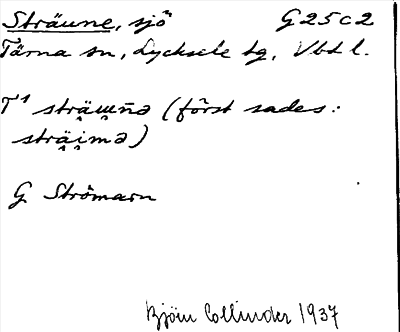 Sträune, sjö G25c2
Tärna sn, Lycksele lg, Vbd l.
T¹ (först sades:
G Strömarn
Björn Collinder 1937